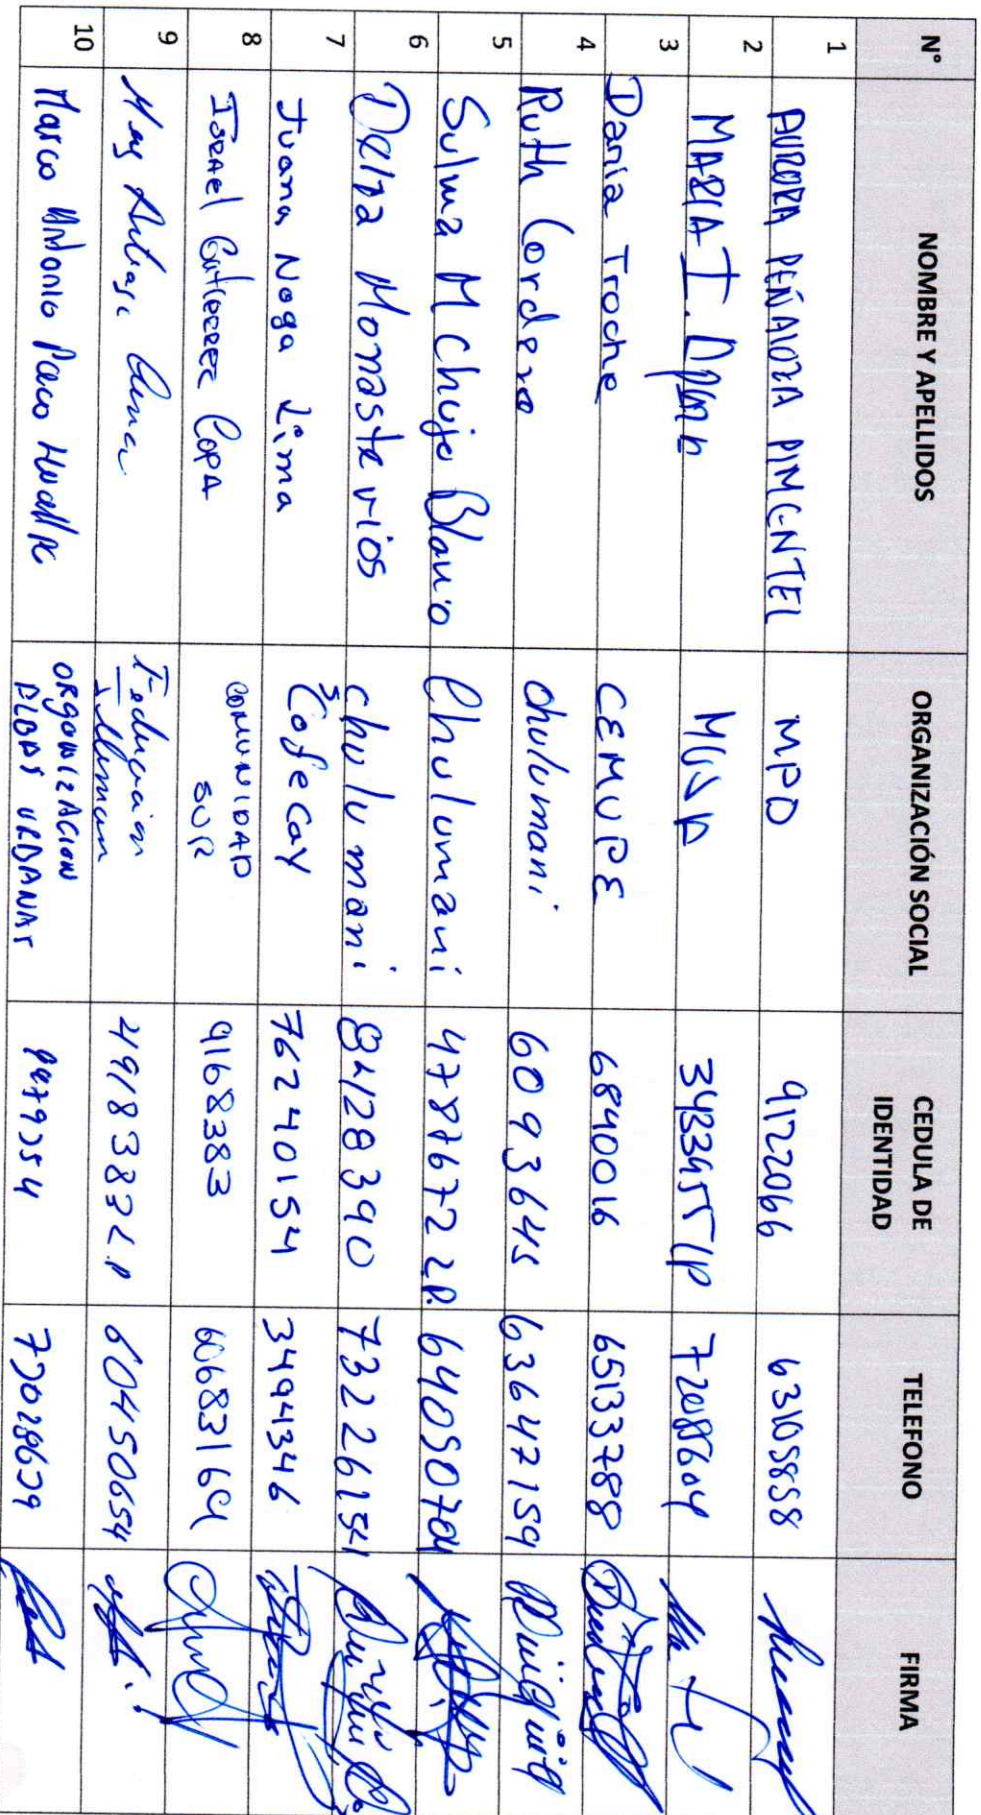 N° NOMBRE Y APELLIDOS ORGANIZACIÓN SOCIAL CEDULA DE IDENTIDAD TELEFONO FIRMA
1 AURORA PEÑALOZA PIMENTEL MPD 9122066 63105858
2 MARIA T. MCD 3433455 LP 72088604
3 Dania Troche CEMUPE 6840016 65133788
4 Ruth Cordero chulumani 6093645 63647159
5 Sulma M Chujo Blanco Chulumani 4787672 LP. 64050704
6 Delna Monasterios chulumani 84128390 73226154
7 Juana Noga Lima Cofecay 76240154 3494346
8 ISRAEL Gutierrez COPA COMUNIDAD SUR 9168383 60683164
9 4918383 LP 60450654
10 Marco Antonio Paco Huallpa ORGANIZACION URBANAS 77028639